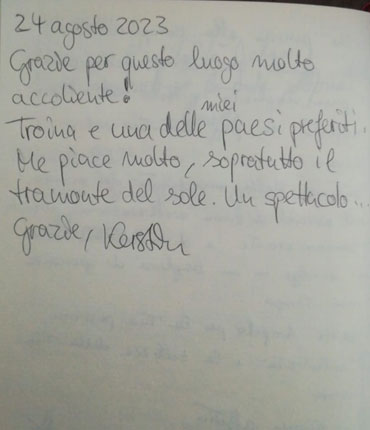 24 agosto 2023
Grazie per questo luogo molto
accoliente!
Troina e una delle miei paesi preferiti.
Me piace molto, sopratutto il
tramonte del sole. Un spettacolo...
Grazie, Kerstin